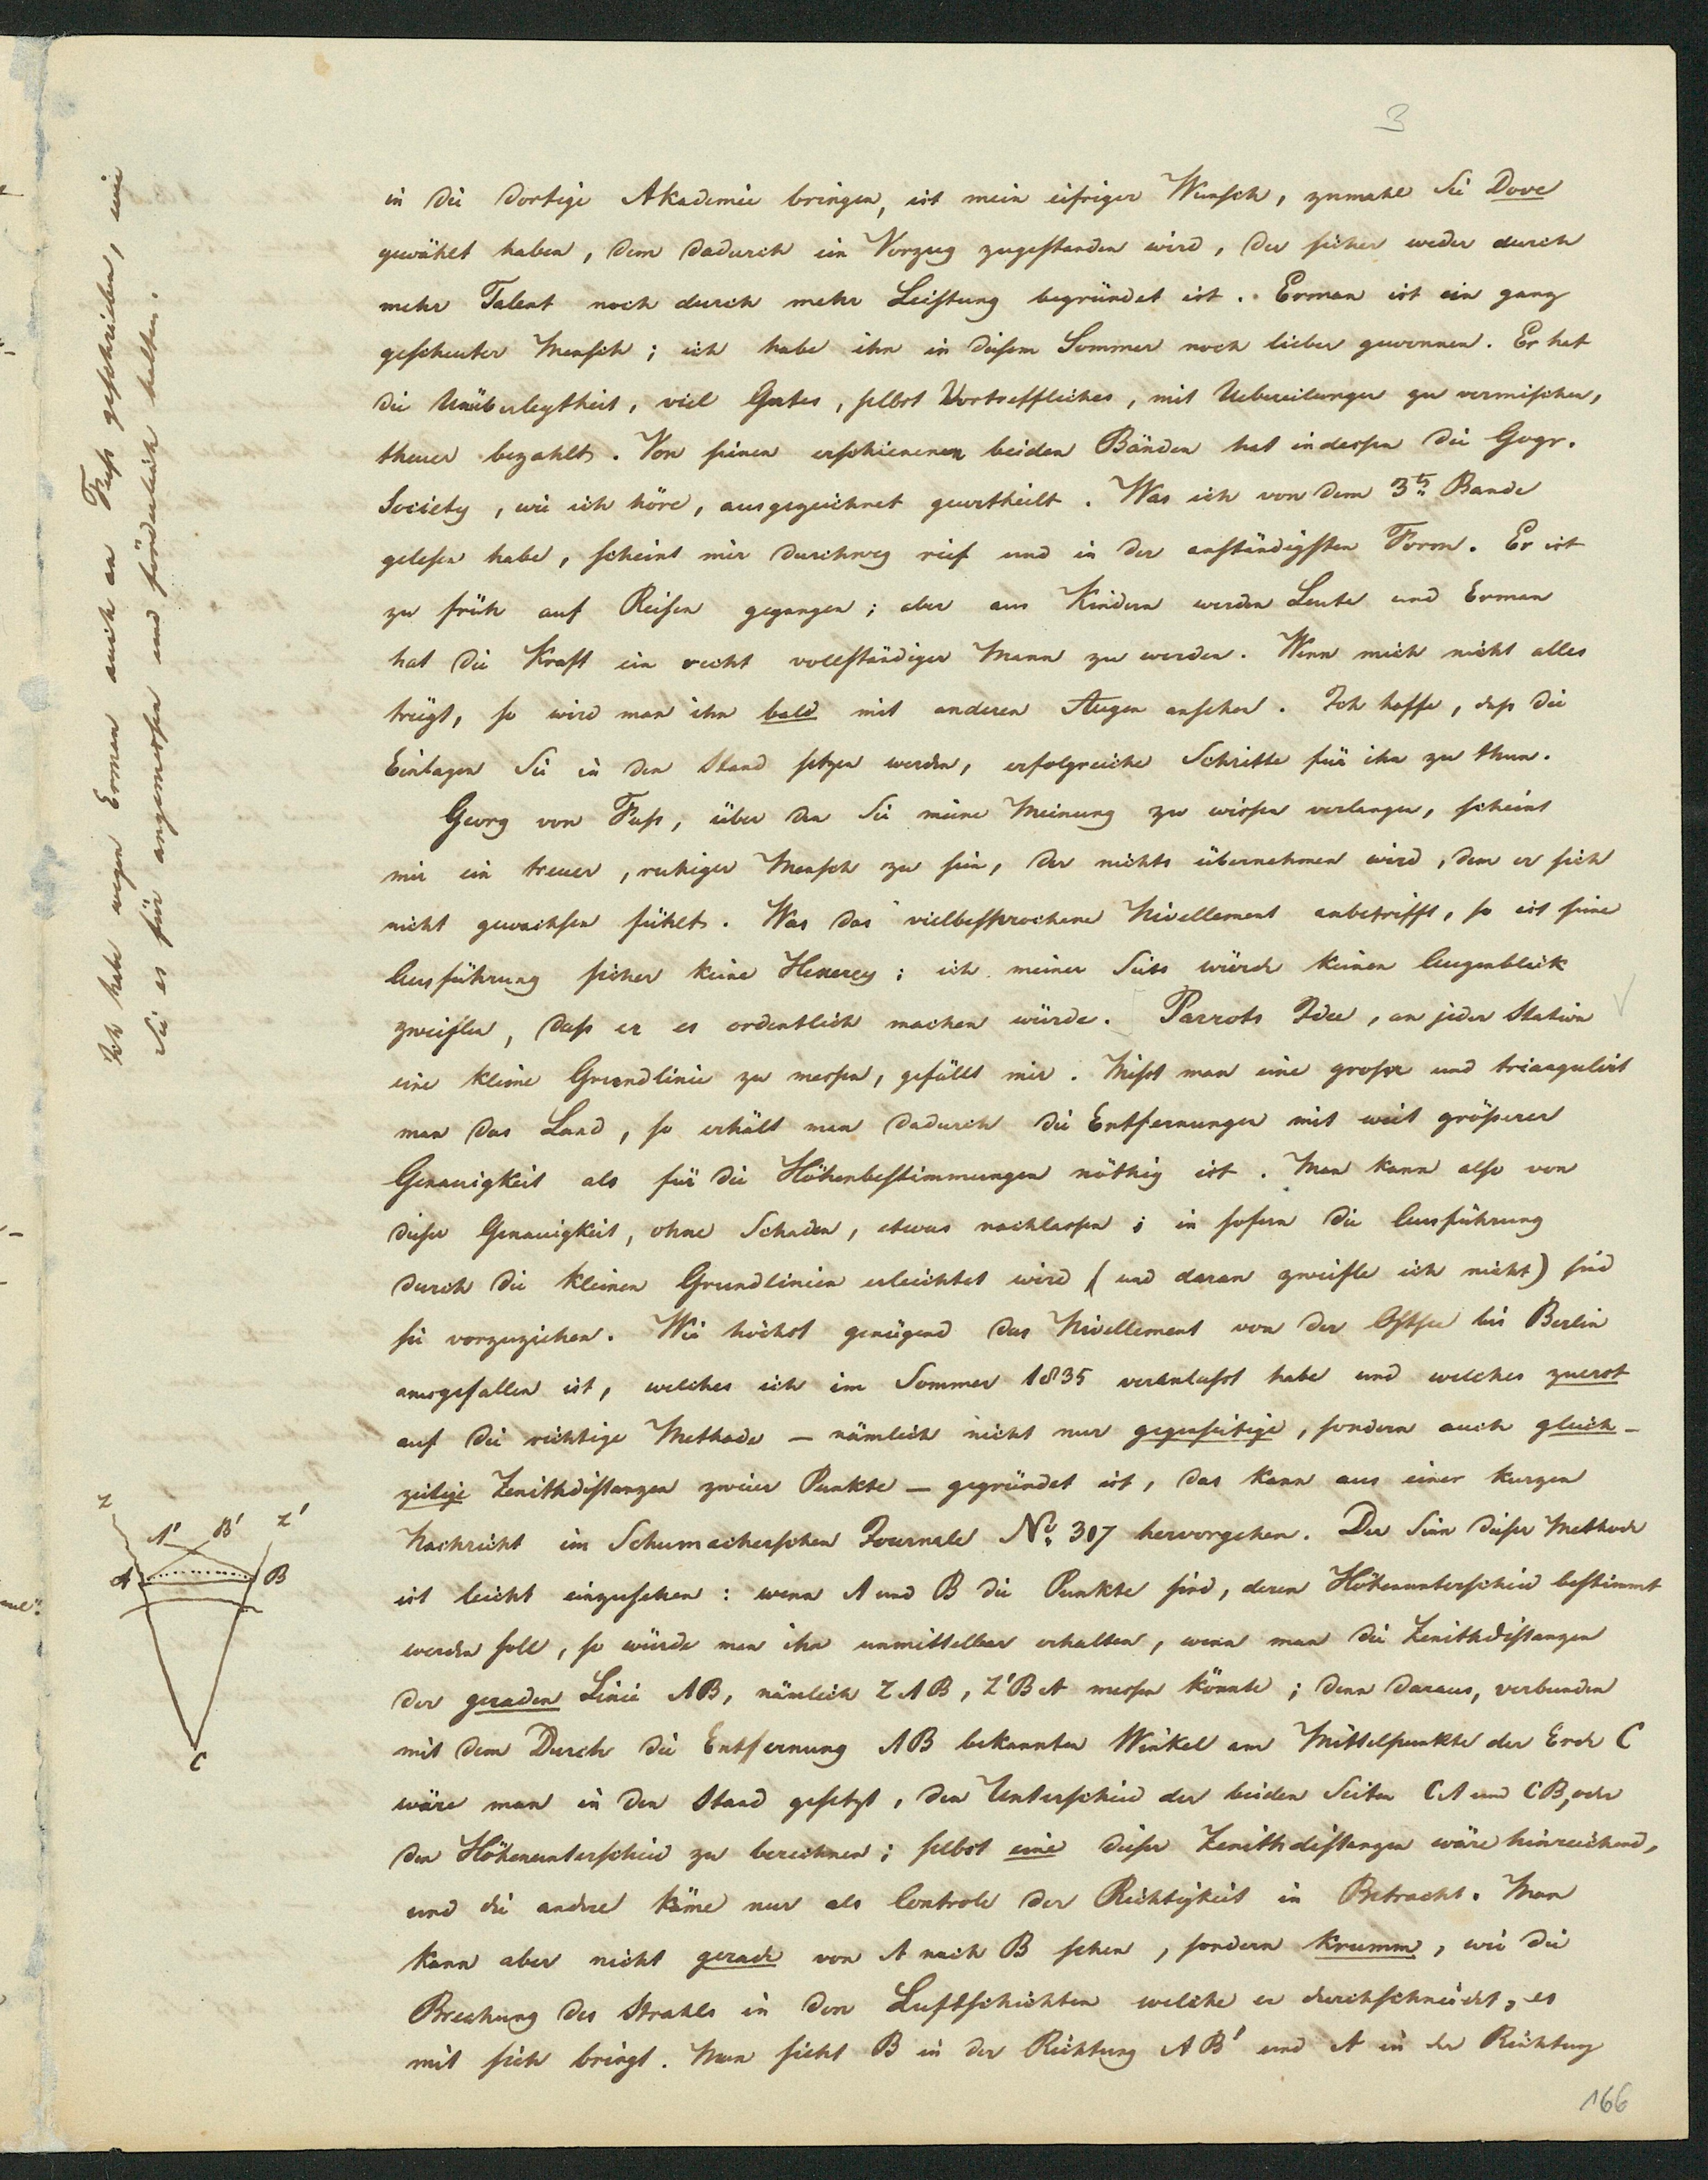 3
in die dortige Akademie bringen, ist mein eifriger Wunsch, zumahl Sie Dove
gewählt haben, dem dadurch ein Vorzug zugestanden wird, der sicher weder durch
mehr Talent noch durch mehr Leistung begründet ist. Erman ist ein ganz
gescheuter Mensch; ich habe ihn in diesem Sommer noch lieber gewonnen. Er hat
die Unüberlegtheit, viel Gutes, selbst Vortreffliches, mit Uebereilungen zu vermischen,
theuer bezahlt. Von seinen erschienenen beiden Bänden hat indessen die Gogr.
Society, wie ich höre, ausgezeichnet geurtheilt. Was ich von dem 3t. Bande
gelesen habe, scheint mir durchweg reif und in der anständigsten Form. Er ist
zu früh auf Reisen gegangen; aber aus Kindern werden Leute und Erman
hat die Kraft ein recht vollständiger Mann zu werden. Wenn mich nicht alles
trügt, so wird man ihn bald mit anderen Augen ansehen. Ich hoffe, daß die
Einlagen Sie in den Stand setzen werden, erfolgreiche Schritte für ihn zu thun.
Georg von Fuß, über den Sie meine Meinung zu wissen verlangen, scheint
mir ein treuer, ruhiger Mensch zu sein, der nichts übernehmen wird, dem er sich
nicht gewachsen fühlt. Was das vielbesprochene Nivellement anbetrifft, so ist seine
Ausführung sicher keine Hexerey; ich meiner Seits würde keinen Augenblick
zweiflen, daß er es ordentlich machen würde. Parrots Idee, an jeder Station
eine kleine Grundlinie zu messen, gefällt mir. Mißt man eine große und triangulirt
man das Land, so erhält man dadurch die Entfernungen mit weit größerer
Genauigkeit als für die Höhenbestimmungen nöthig ist. Man kann also von
dieser Genauigkeit, ohne Schaden, etwas nachlassen; in sofern die Ausführung
durch die kleinen Grundlinien erleichtet wird (und daran zweifle ich nicht) sind
sie vorzuziehen. Wie höchst genügend das Nivellement von der Ostsee bis Berlin
ausgefallen ist, welches ich im Sommer 1835 veranlaßt habe und welches zuerst
auf die richtige Methode — nämlich nicht nur gegenseitige, sondern auch gleich-
zeitige Zenithdistanzen zweier Punkte — gegründet ist, das kann aus einer kurzen
Nachricht im Schumacherschen Journale No. 307 hervorgehen. Der Sinn dieser Methode
ist leicht einzusehen: wenn A und B die Punkte sind, deren Höhenunterschied bestimmt
werden soll, so würde man ihn unmittelbar erhalten, wenn man die Zenithdistanzen
der geraden Linie AB, nämlich ZAB, Z'BA messen könnte; denn daraus, verbunden
mit dem Durch die Entfernung AB bekannten Winkel am Mittelpunkte der Erde C
wäre man in den Stand gesetzt, den Unterschied der beiden Seiten CA und CB, oder
den Höhenunterschied zu berechnen; selbst eine dieser Zenithdistanzen wäre hinreichend,
und die andere käme nur als Controle der Richtigkeit in Betracht. Man
kann aber nicht gerade von A nach B sehen, sondern krumm, wie die
Brechung des Strahls in den Luftschichten welche er durchschneidet, es
mit sich bringt. Man sieht B in der Richtung AB' und A in der Richtung
Ich habe wegen Erman auch an Fuß geschrieben, wie
Sie es für angemessen und förderlich halten.
Z A' B' Z'
A B
C
166